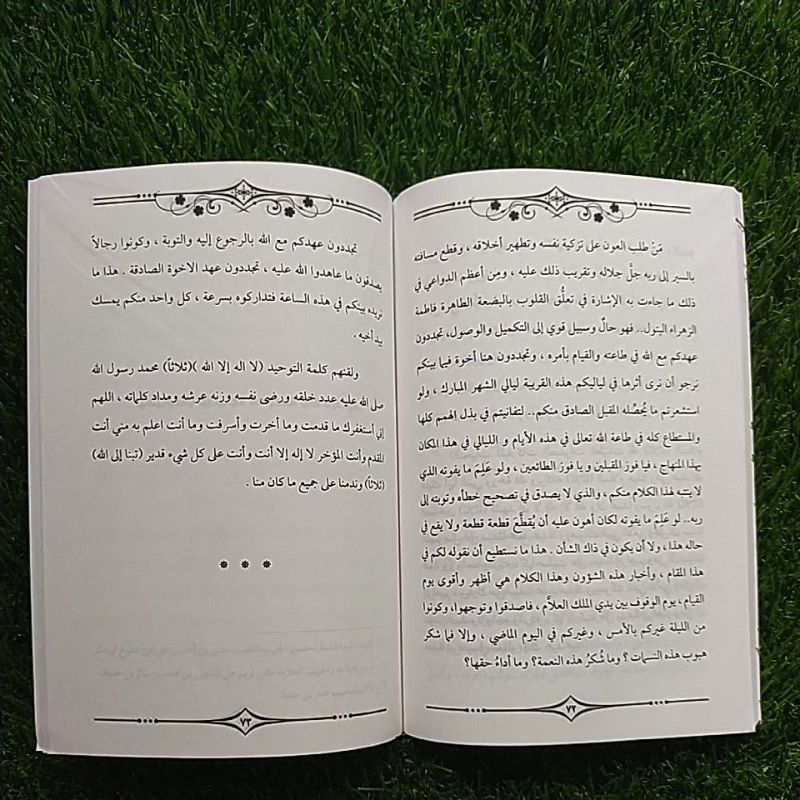 مَنْ طلب العون على تزكية نفسه وتطهير أخلاقه ، وقطع مسافته
بالسير إلى ربه جلَّ جلاله وتقريب ذلك عليه ، ومِن أعظم الدواعي في
ذلك ما جاءت به الإشارة في تعلُّق القلوب بالبضعة الطاهرة فاطمة
الزهراء البتول.. فهو حالٌ وسبيل قوي إلى التكميل والوصول، تجددون
عهدكم مع الله في طاعته والقيام بأمره ، وتجددون هنا أخوة فيما بينكم
نرجو أن نرى أثرها في لياليكم هذه القريبة ليالي الشهر المبارك ، ولو
استشعرتم ما يُحصِّله المقبل الصادق منكم.. لتفانيتم في بذل الهمم كلها
والمستطاع كله في طاعة الله تعالى في هذه الأيام و الليالي في هذا المكان
بهذا المنهاج ، فيا فوز المقبلين و يا فوز الطائعين ، ولو عَلِمَ ما يفوته الذي
لا ينتبه لهذا الكلام منكم ، والذي لا يصدق في تصحيح خطأه وتوبته إلى
ربه.. لو عَلِمَ ما يفوته لكان أهون عليه أن يُقطَّعَ قطعة قطعة ولا يقع في
حاله هذا ، ولا أن يكون في ذاك الشأن . هذا ما نستطيع أن نقوله لكم في
هذا المقام ، وأخبار هذه الشؤون وهذا الكلام هي أظهر وأقوى يوم
القيام ، يوم الوقوف بين يدي الملك العلاَّم ، فاصدقوا وتوجهوا، وكونوا
من الليلة غيركم بالأمس ، وغيركم في اليوم الماضي ، وإلا فما شكر
هبوب هذه النسمات ؟ وما شُكرُ هذه النعمة؟ وما أداءُ حقها؟
٧٢
تجددون عهدكم مع الله بالرجوع إليه والتوبة ، وكونوا رجالاً
يصدقون ما عاهدوا الله عليه ، تجددون عهد الاخوة الصادقة . هذا ما
نريده بينكم في هذه الساعة فتداركوه بسرعة ، كل واحد منكم يمسك
بيد أخيه .
ولقنهم كلمة التوحيد (لا اله إلا الله )(ثلاثاً) محمد رسول الله
صلى الله عليه عدد خلقه ورضى نفسه وزنه عرشه ومداد كلماته ، اللهم
إني أستغفرك ما قدمت وما أخرت وأسرفت وما أنت اعلم به مني أنت
المقدم وأنت المؤخر لا إله إلا أنت وأنت على كل شيء قدير (تبنا إلى الله)
(ثلاثاً) وندمنا على جميع ما كان منا .
* * *
٧٣